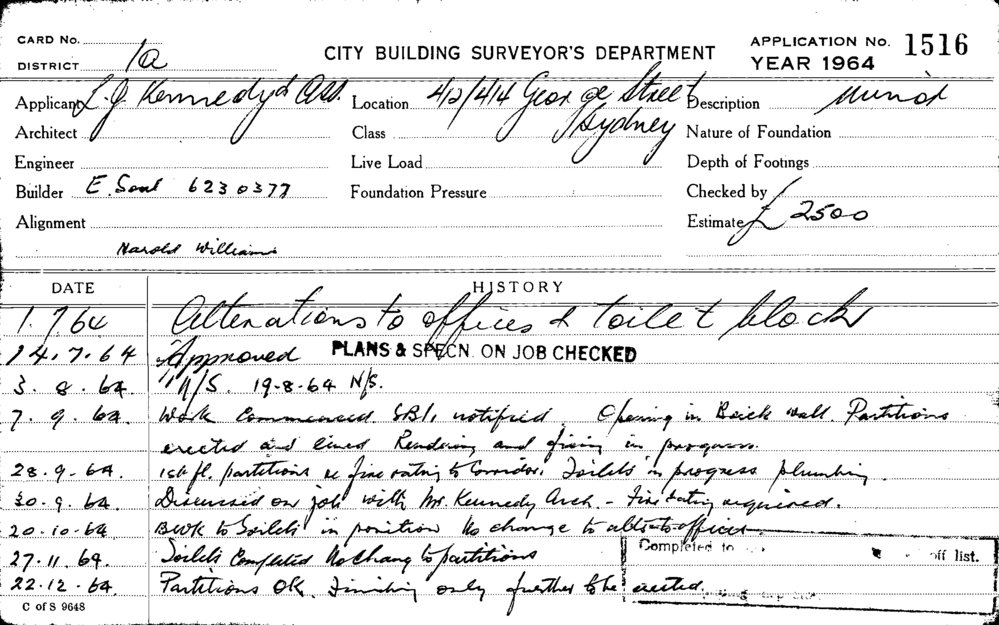 CARD No.
DISTRICT 1a
CITY BUILDING SURVEYOR'S DEPARTMENT
APPLICATION No. 1516
YEAR 1964
Applicant L. J. Kennedy & Ass. Location 412/414 George Street Sydney Description Minor
Architect Class Nature of Foundation
Engineer Live Load Depth of Footings
Builder E. Saul 6230377 Foundation Pressure Checked by
Alignment Estimate £ 2500
Harold Williams
DATE HISTORY
1.7.64 Alterations to offices & toilet blocks
14.7.64 Approved PLANS & SPECN. ON JOB CHECKED
3.8.64. N/S. 19-8-64 N/S.
7.9.64. Work Commenced SBI, notified. Opening in Brick wall. Partitions
erected and lined Rendering and fixing in progress.
28.9.64. 1st fl. partitions re fire rating to Corridor. Toilets in progress plumbing
30.9.64. Discussed on job with Mr. Kennedy Arch - Fire rating required.
20.10.64 BWK to Toilets in position No change to alts to offices
27.11.64. Toilets Completed No Change to partitions
22.12.64. Partitions OK. Finishing only further to be erected.
Completed to off list.
C of S 9648